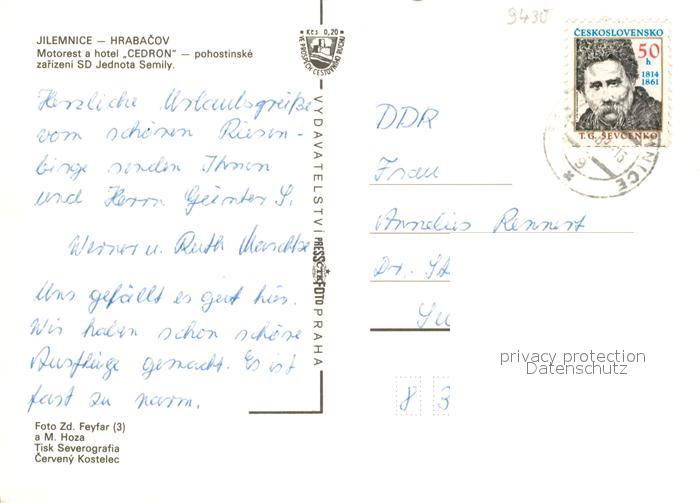 9430
JILEMNICE — HRABAČOV
Motorest a hotel „CEDRON" — pohostinské
zařízení SD Jednota Semily.
Kčs 0,20
VE PROSPĚCH CESTOVNÍHO RUCHU
ČESKOSLOVENSKO
50
h
1814
1861
T.G. ŠEVČENKO
Herzliche Urlaubsgrüße
vom schönen Riesen-
birge senden Ihnen
und Herrn Günter S.
Werner u. Ruth
Uns gefällt es gut hier.
Wir haben schon schöne
Ausflüge gemacht. Es ist
fast zu warm.
VYDAVATELSTVÍ PRESSFOTO PRAHA
DDR
Frau
Annelies Rennert
Dr. St
8 3
privacy protection
Datenschutz
Foto Zd. Feyfar (3)
a M. Hoza
Tisk Severografia
Červený Kostelec